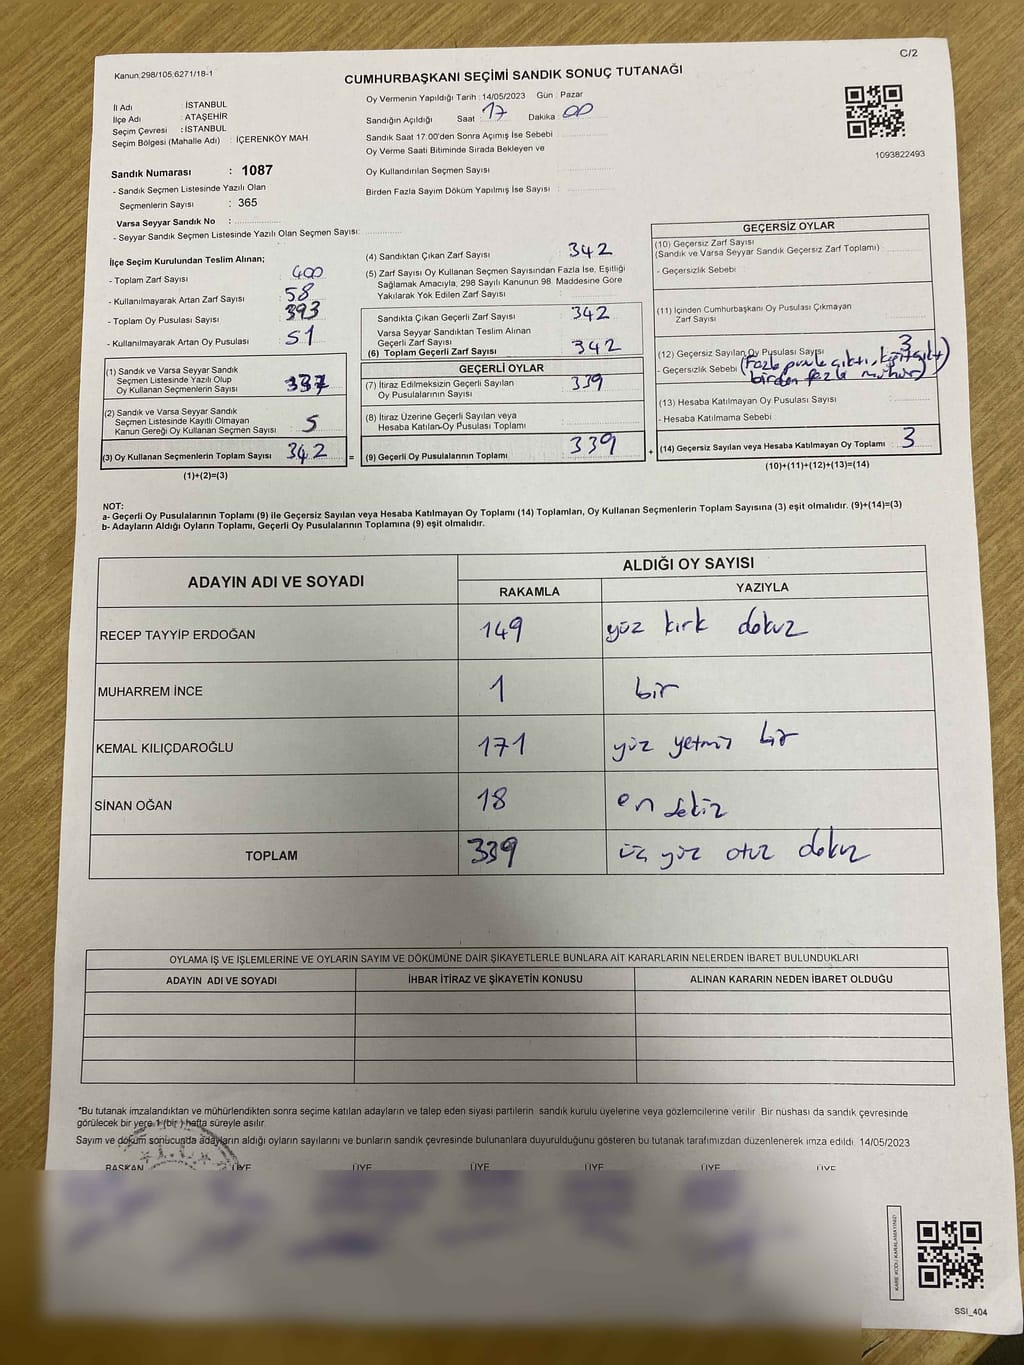 C/2
Kanun:298/105;6271/18-1
CUMHURBAŞKANI SEÇİMİ SANDIK SONUÇ TUTANAĞI
İl Adı : İSTANBUL
İlçe Adı : ATAŞEHİR
Seçim Çevresi : İSTANBUL
Seçim Bölgesi (Mahalle Adı) : İÇERENKÖY MAH
Sandık Numarası : 1087
- Sandık Seçmen Listesinde Yazılı Olan
Seçmenlerin Sayısı : 365
Varsa Seyyar Sandık No :
- Seyyar Sandık Seçmen Listesinde Yazılı Olan Seçmen Sayısı:
Oy Vermenin Yapıldığı Tarih : 14/05/2023 Gün : Pazar
Sandığın Açıldığı Saat 17 Dakika 00
Sandık Saat 17:00'den Sonra Açımış İse Sebebi
Oy Verme Saati Bitiminde Sırada Bekleyen ve
Oy Kullandırılan Seçmen Sayısı
Birden Fazla Sayım Döküm Yapılmış İse Sayısı :
1093822493
İlçe Seçim Kurulundan Teslim Alınan;
- Toplam Zarf Sayısı : 400
- Kullanılmayarak Artan Zarf Sayısı : 58
- Toplam Oy Pusulası Sayısı : 393
- Kullanılmayarak Artan Oy Pusulası : 51
(1) Sandık ve Varsa Seyyar Sandık
Seçmen Listesinde Yazılı Olup
Oy Kullanan Seçmenlerin Sayısı : 337
(2) Sandık ve Varsa Seyyar Sandık
Seçmen Listesinde Kayıtlı Olmayan
Kanun Gereği Oy Kullanan Seçmen Sayısı : 5
(3) Oy Kullanan Seçmenlerin Toplam Sayısı : 342
(1)+(2)=(3)
=
(4) Sandıktan Çıkan Zarf Sayısı : 342
(5) Zarf Sayısı Oy Kullanan Seçmen Sayısından Fazla İse, Eşitliği
Sağlamak Amacıyla; 298 Sayılı Kanunun 98. Maddesine Göre
Yakılarak Yok Edilen Zarf Sayısı :
Sandıkta Çıkan Geçerli Zarf Sayısı : 342
Varsa Seyyar Sandıktan Teslim Alınan
Geçerli Zarf Sayısı :
(6) Toplam Geçerli Zarf Sayısı : 342
GEÇERLİ OYLAR
(7) İtiraz Edilmeksizin Geçerli Sayılan
Oy Pusulalarının Sayısı : 339
(8) İtiraz Üzerine Geçerli Sayılan veya
Hesaba Katılan Oy Pusulası Toplamı :
(9) Geçerli Oy Pusulalarının Toplamı : 339
+
GEÇERSİZ OYLAR
(10) Geçersiz Zarf Sayısı
(Sandık ve Varsa Seyyar Sandık Geçersiz Zarf Toplamı) :
- Geçersizlik Sebebi :
(11) İçinden Cumhurbaşkanı Oy Pusulası Çıkmayan
Zarf Sayısı :
(12) Geçersiz Sayılan Oy Pusulası Sayısı 3
- Geçersizlik Sebebi : (Fazla pusula çıktı,
birden fazla mühür)
(13) Hesaba Katılmayan Oy Pusulası Sayısı :
- Hesaba Katılmama Sebebi :
(14) Geçersiz Sayılan veya Hesaba Katılmayan Oy Toplamı : 3
(10)+(11)+(12)+(13)=(14)
NOT:
a- Geçerli Oy Pusulalarının Toplamı (9) ile Geçersiz Sayılan veya Hesaba Katılmayan Oy Toplamı (14) Toplamları, Oy Kullanan Seçmenlerin Toplam Sayısına (3) eşit olmalıdır. (9)+(14)=(3)
b- Adayların Aldığı Oyların Toplamı, Geçerli Oy Pusulalarının Toplamına (9) eşit olmalıdır.
ADAYIN ADI VE SOYADI
ALDIĞI OY SAYISI
RAKAMLA YAZIYLA
RECEP TAYYİP ERDOĞAN 149 yüz kırk dokuz
MUHARREM İNCE 1 bir
KEMAL KILIÇDAROĞLU 171 yüz yetmiş bir
SİNAN OĞAN 18 on sekiz
TOPLAM 339 üç yüz otuz dokuz
OYLAMA İŞ VE İŞLEMLERİNE VE OYLARIN SAYIM VE DÖKÜMÜNE DAİR ŞİKAYETLERLE BUNLARA AİT KARARLARIN NELERDEN İBARET BULUNDUKLARI
ADAYIN ADI VE SOYADI İHBAR İTİRAZ VE ŞİKAYETİN KONUSU ALINAN KARARIN NEDEN İBARET OLDUĞU
*Bu tutanak imzalandıktan ve mühürlendikten sonra seçime katılan adayların ve talep eden siyasi partilerin sandık kurulu üyelerine veya gözlemcilerine verilir. Bir nüshası da sandık çevresinde
görülecek bir yere 1 (bir) hafta süreyle asılır.
Sayım ve döküm sonucunda adayların aldığı oyların sayılarını ve bunların sandık çevresinde bulunanlara duyurulduğunu gösteren bu tutanak tarafımızdan düzenlenerek imza edildi. 14/05/2023
BAŞKAN ÜYE ÜYE ÜYE ÜYE ÜYE ÜYE
KARE KODU KARALAMAYINIZ!
SSI_404